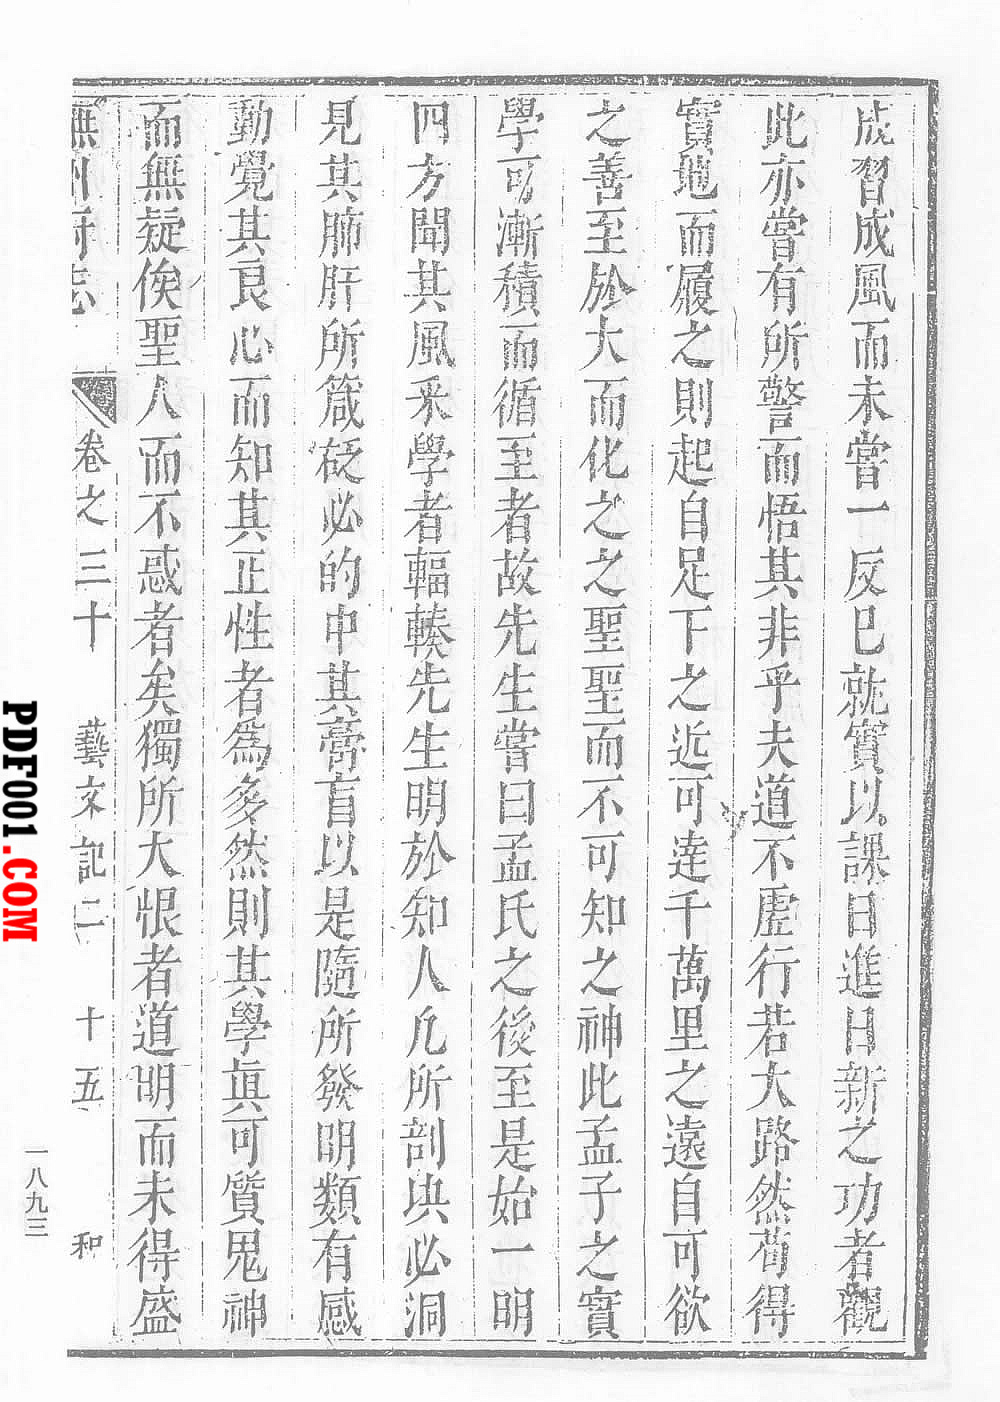 成習成風而未嘗一反已就實以課日進日新之功者觀
此亦嘗有所警而悟其非乎夫道不虛行若大路然苟得
實地而履之則起自足下之近可達千萬里之遠自可欲
之善至於大而化之之聖聖而不可知之神此孟子之實
學可漸積而循至者故先生嘗曰孟氏之後至是始一明
四方聞其風采學者輻輳先生明於知人凡所剖決必洞
見其肺肝所箴砭必的中其膏肓以是隨所發明類有感
動覺其良心而知其正性者為多然則其學眞可質鬼神
而無疑俟聖人而不惑者矣獨所大恨者道明而未得盛
撫州府志 卷之三十 藝文記二 十五 和
一八九三
PDF001.COM